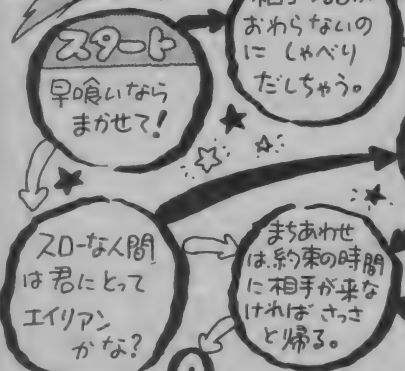 スタート
早喰いなら
まかせて!
おわらないの
に しゃべり
だしちゃう。
スローな人間
は君にとって
エイリアン
かな?
まちあわせ
は、約束の時間
に相手が来な
ければ さっさ
と帰る。